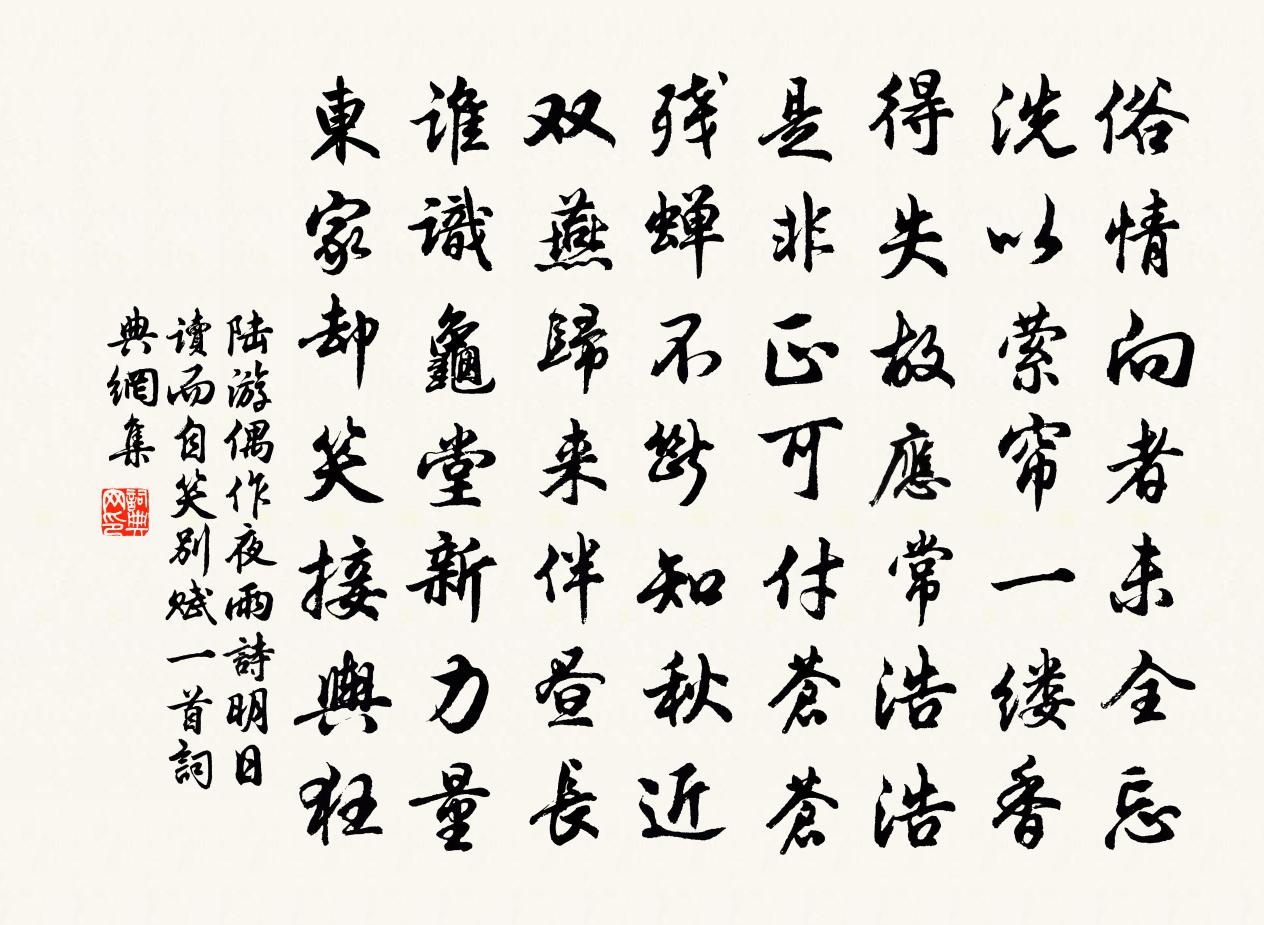 俗情向者未全忘
洗以萦帘一缕香
得失故應常浩浩
是非正可付蒼蒼
残蝉不断知秋近
双燕歸来伴昼長
谁識龜堂新力量
東家却笑接輿狂
陆游偶作夜雨詩明日
讀而自笑别赋一首詞
典網集
詞典网印